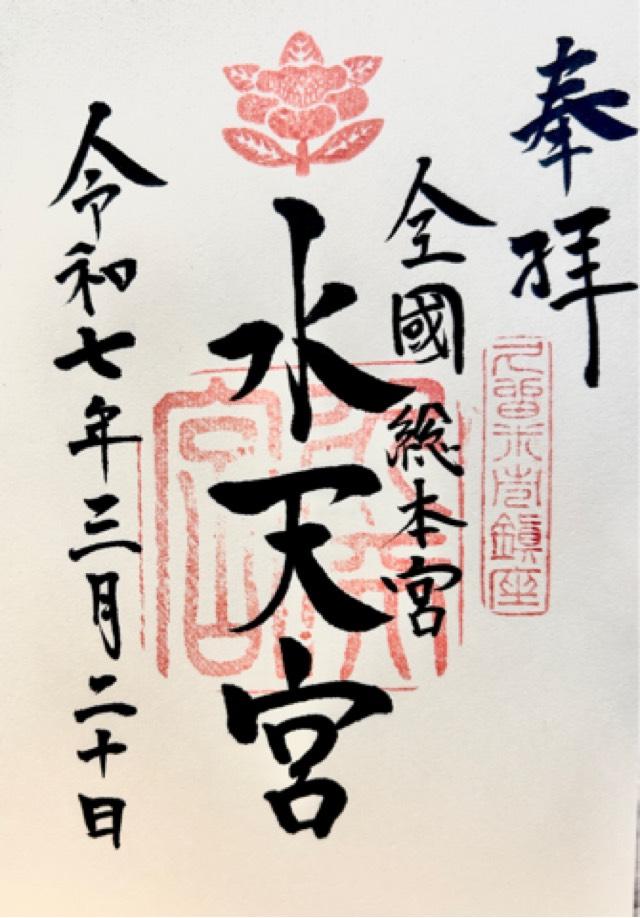 奉拝
久留米市鎮座
全國総本宮
水天宮
令和七年三月二十日